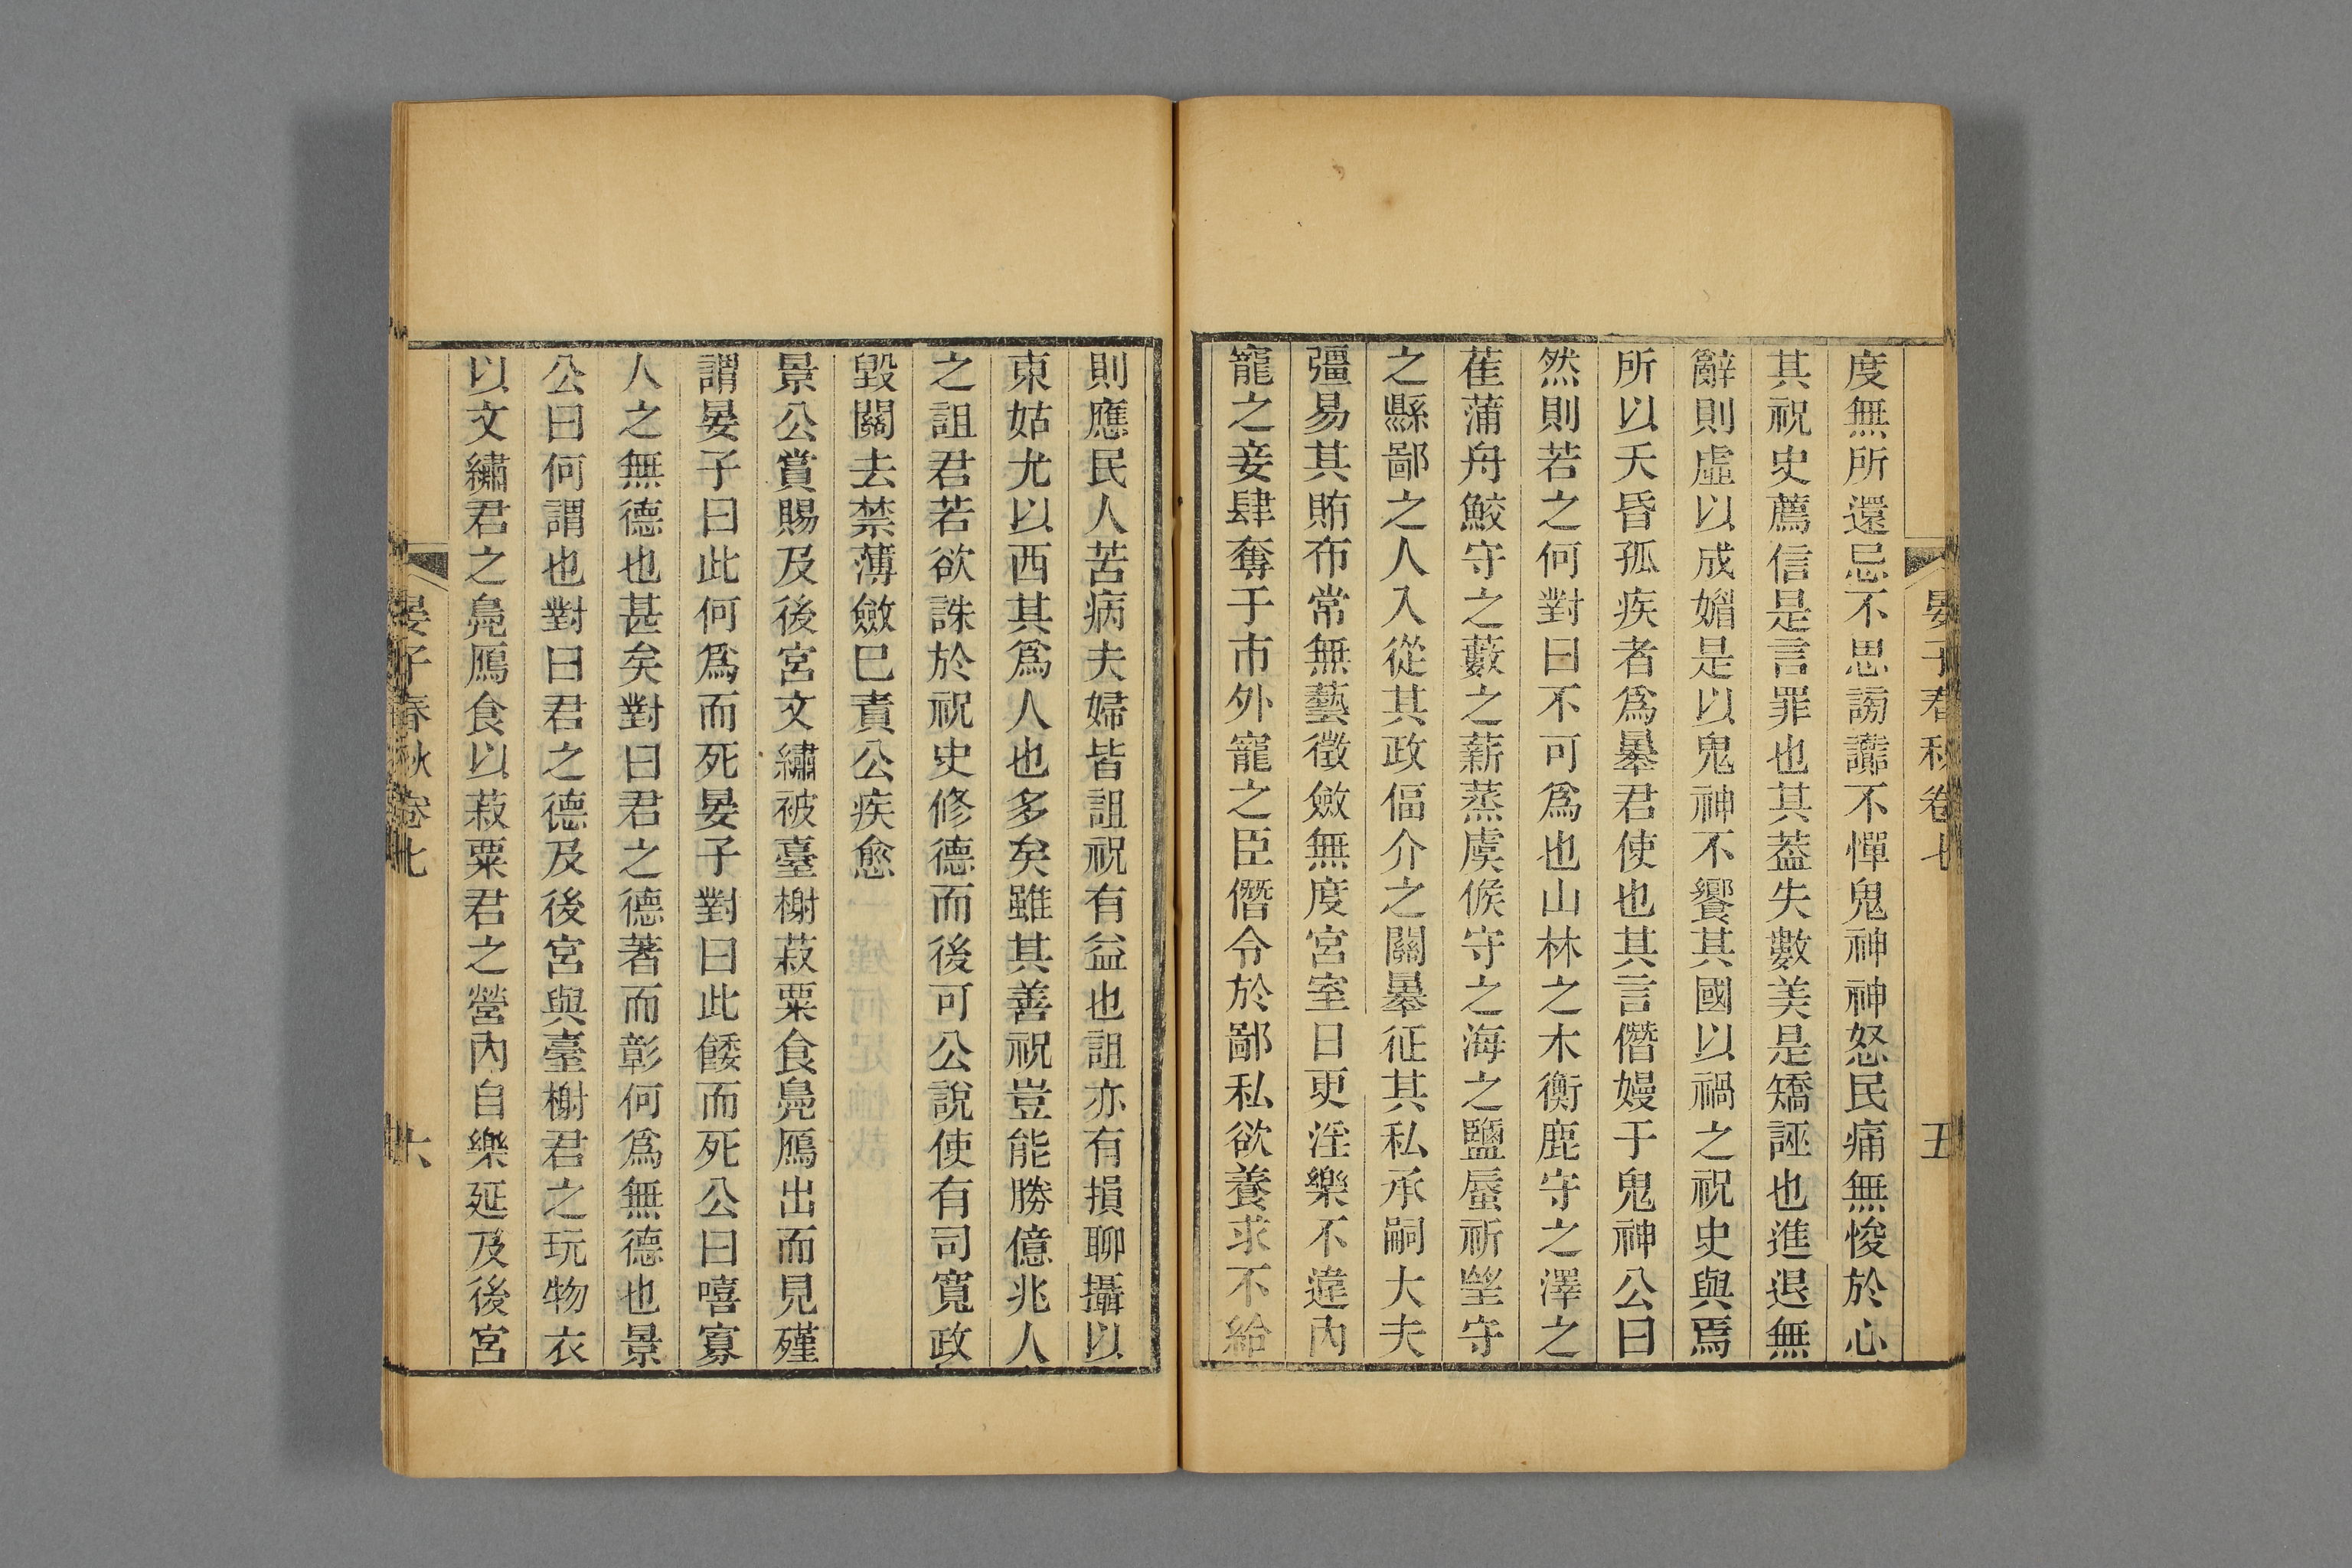 晏子春秋卷七 五
度無所還忌不思謗讟不憚鬼神神怒民痛無悛於心
其祝史薦信是言罪也其蓋失數美是矯誣也進退無
辭則虛以成媚是以鬼神不饗其國以禍之祝史與焉
所以夭昏孤疾者爲㬥君使也其言僭嫚于鬼神公曰
然則若之何對曰不可爲也山林之木衡鹿守之澤之
萑蒲舟鮫守之藪之薪蒸虞候守之海之鹽蜃祈望守
之縣鄙之人入從其政偪介之關㬥征其私承嗣大夫
彊易其賄布常無藝徵斂無度宮室日更淫樂不違內
寵之妾肆奪于市外寵之臣僭令於鄙私欲養求不給
則應民人苦病夫婦皆詛祝有益也詛亦有損聊攝以
東姑尤以西其爲人也多矣雖其善祝豈能勝億兆人
之詛君若欲誅於祝史修德而後可公說使有司寬政
毀關去禁薄斂已責公疾愈
景公賞賜及後宮文繡被臺榭菽粟食鳧鴈出而見殣
謂晏子曰此何爲而死晏子對曰此餧而死公曰嘻寡
人之無德也甚矣對曰君之德著而彰何爲無德也景
公曰何謂也對曰君之德及後宮與臺榭君之玩物衣
以文繡君之鳧鴈食以菽粟君之營內自樂延及後宮
晏子春秋卷七 六